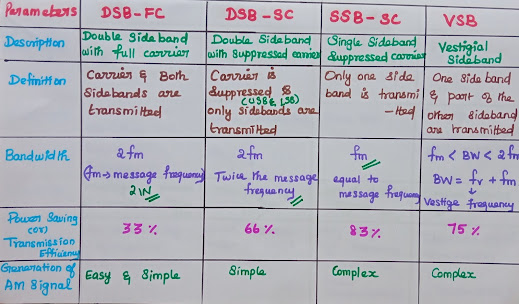 Parameters DSB-FC DSB-SC SSB-SC VSB
Description
Double Sideband
with full carrier
Double Sideband
with Suppressed carrier
Single Sideband
Suppressed carrier
Vestigial
Sideband
Definition
Carrier & Both
Sidebands are
transmitted
Carrier is
Suppressed &
(USB & LSB)
only Sidebands are
transmitted
Only one side
band is transmi
-tted
One sideband
& part of the
other sideband
are transmitted
Bandwidth
2fm
(fm→message frequency)
2W
2fm
Twice the message
frequency
fm
equal to
message frequency
fm < BW < 2fm
BW = fv + fm
Vestige frequency
Power Saving
(or)
Transmission
Efficiency
33%
66%
83%
75%
Generation of
AM Signal
Easy & Simple
Simple
Complex
Complex